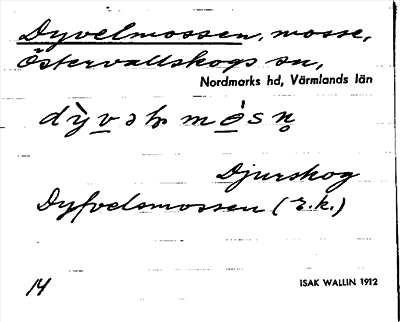 Dyvelmossen, mosse,
Östervallskogs sn,
Nordmarks hd, Värmlands län
Djurskog
Dyfvelsmossen (r.k.)
14
ISAK WALLIN 1912